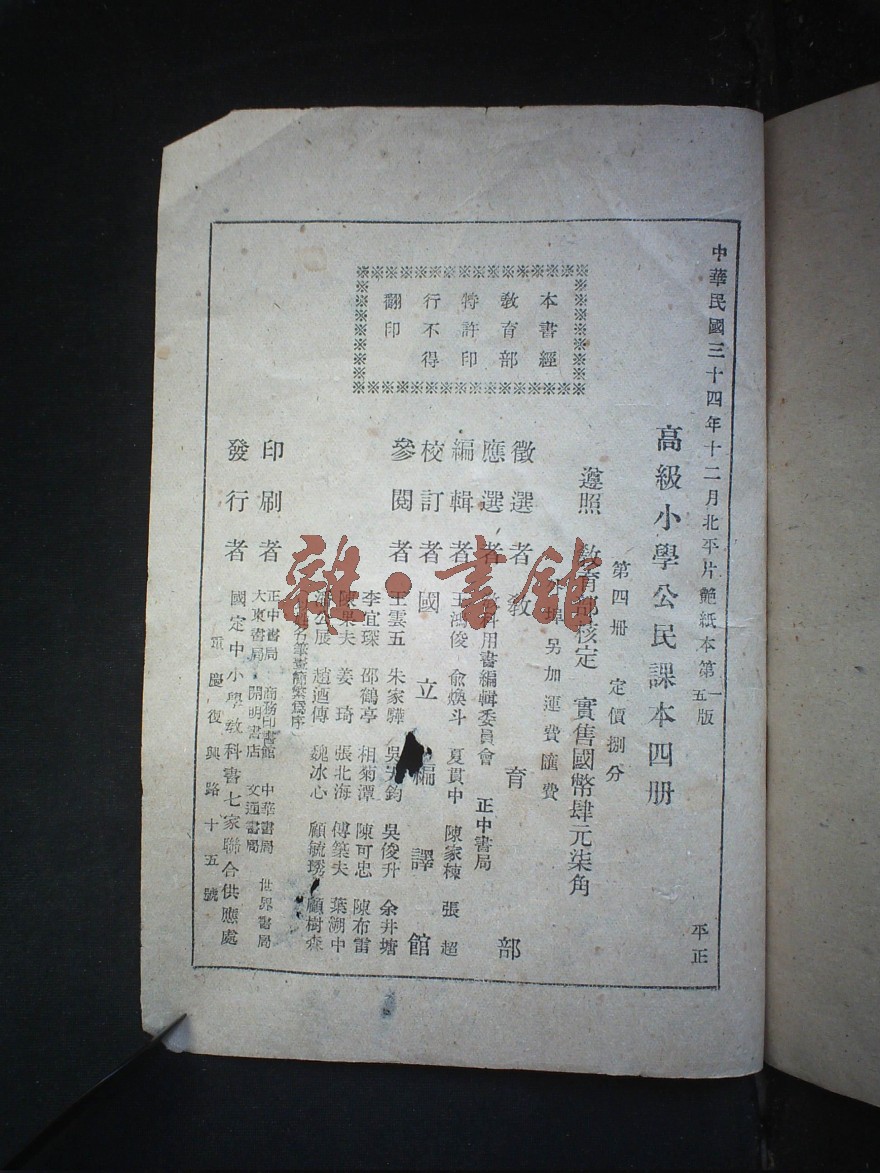 中華民國三十四年十二月北平片艷紙本第一五版
平正
高級小學公民課本四册
第四册 定價捌分
遵照 教育部核定 實售國幣肆元柒角
埠另加運費匯費
本書經
教育部
特許印
行不得
翻印
徵選者 教育部
應選者 科用書編輯委員會 正中書局
編輯者 王鴻俊 俞煥斗 夏貫中 陳家棟 張超
校訂者 國立編譯館
參閱者 王雲五 朱家驊 吳 鈞 吳俊升 余井塘
李宜琛 邵鶴亭 相菊潭 陳可忠 陳布雷
陳果夫 姜琦 張北海 傅築夫 葉溯中
潘公展 趙迺傳 魏冰心 顧毓琇 顧樹森
筆畫簡繁爲序
印刷者 正中書局 商務印書館 中華書局 世界書局
大東書局 開明書店 文通書局
發行者 國定中小學教科書七家聯合供應處
重慶復興路十五號
雜·書館